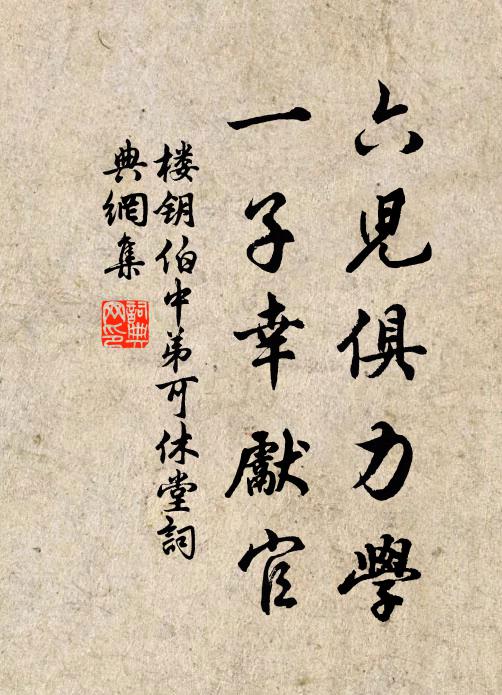 六兒俱力學
一子幸獻官
楼钥伯中弟可休堂詞
典網集
詞典網印